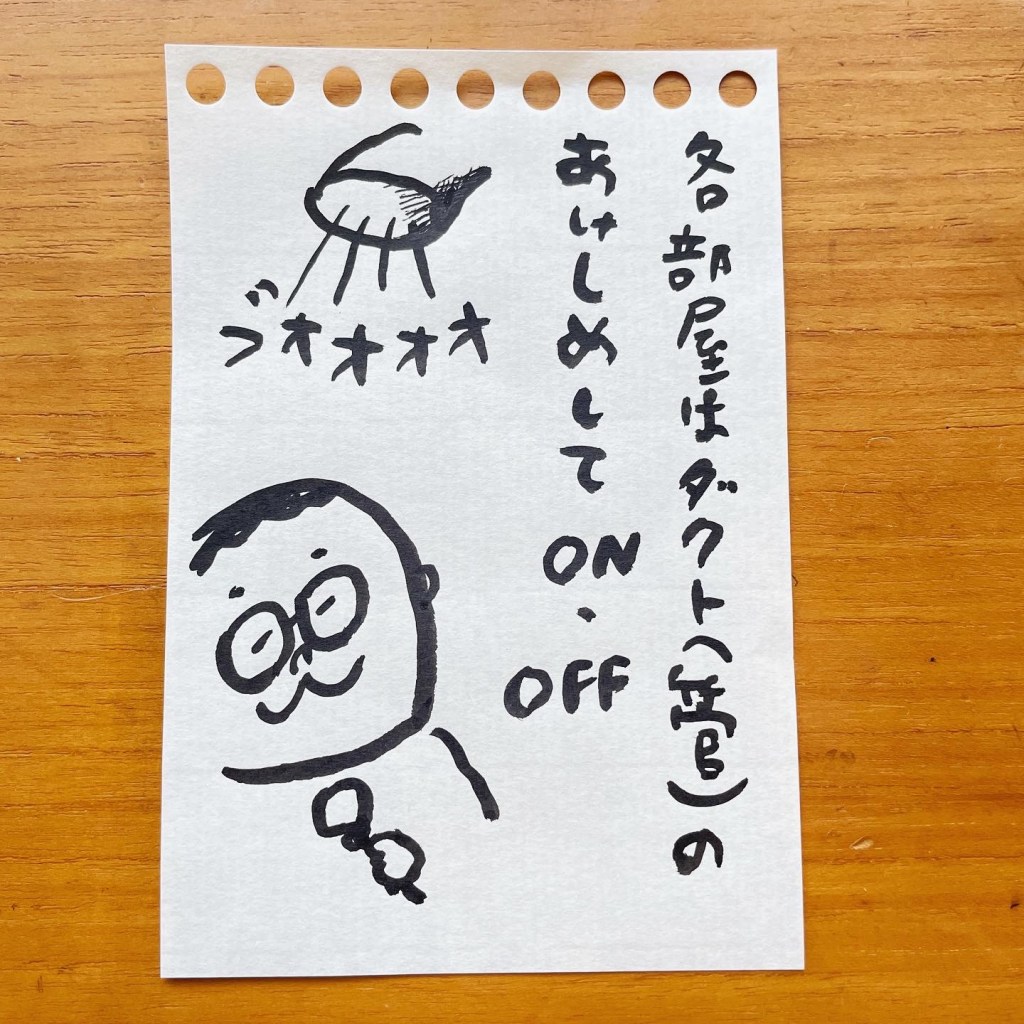 各部屋はダクト(管)の
あけしめして ON・OFF
ブオオオオ